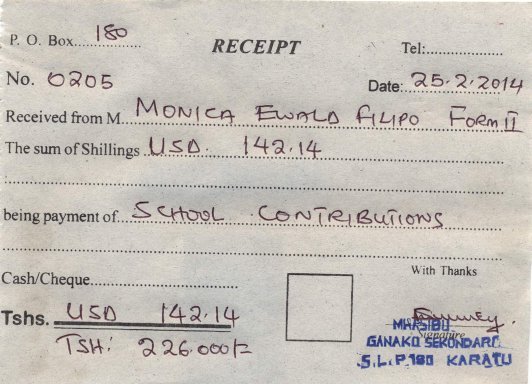 P. O. Box 180
RECEIPT
Tel:
No. 0205
Date: 25.2.2014
Received from M. MONICA EWALD FILIPO FORM II
The sum of Shillings USD. 142.14
being payment of SCHOOL CONTRIBUTIONS
Cash/Cheque
With Thanks
Tshs. USD 142.14
TSH: 226.000/=
Signature
MHASIBU
GANAKO SEKONDARI
S.L.P 180 KARATU